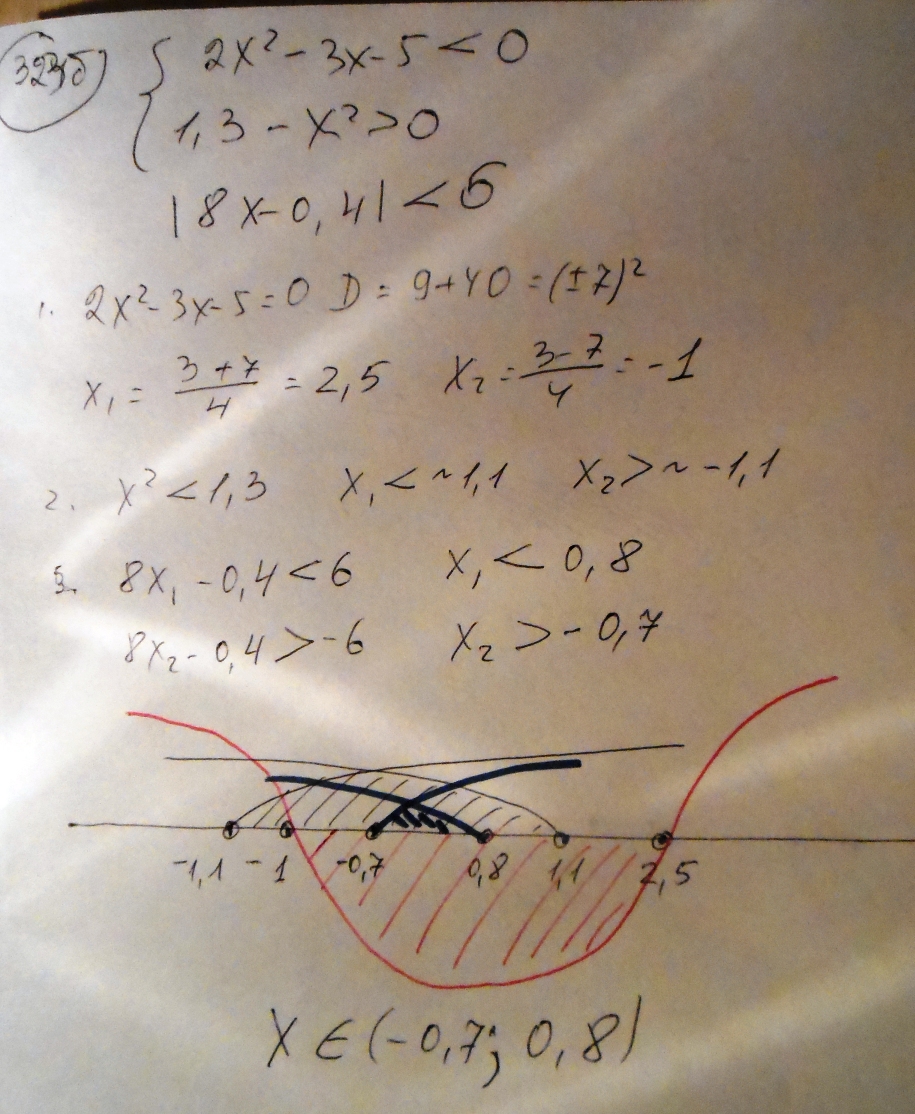 { 2x² - 3x - 5 < 0
1,3 - x² > 0
|8x - 0,4| < 6
1. 2x² - 3x - 5 = 0 D = 9 + 40 = (±7)²
x₁ = (3 + 7)/4 = 2,5 x₂ = (3 - 7)/4 = -1
2. x² < 1,3 x₁ < ~1,1 x₂ > ~ -1,1
3. 8x₁ - 0,4 < 6 x₁ < 0,8
8x₂ - 0,4 > -6 x₂ > -0,7
-1,1 -1 -0,7 0,8 1,1 2,5
X ∈ (-0,7; 0,8)